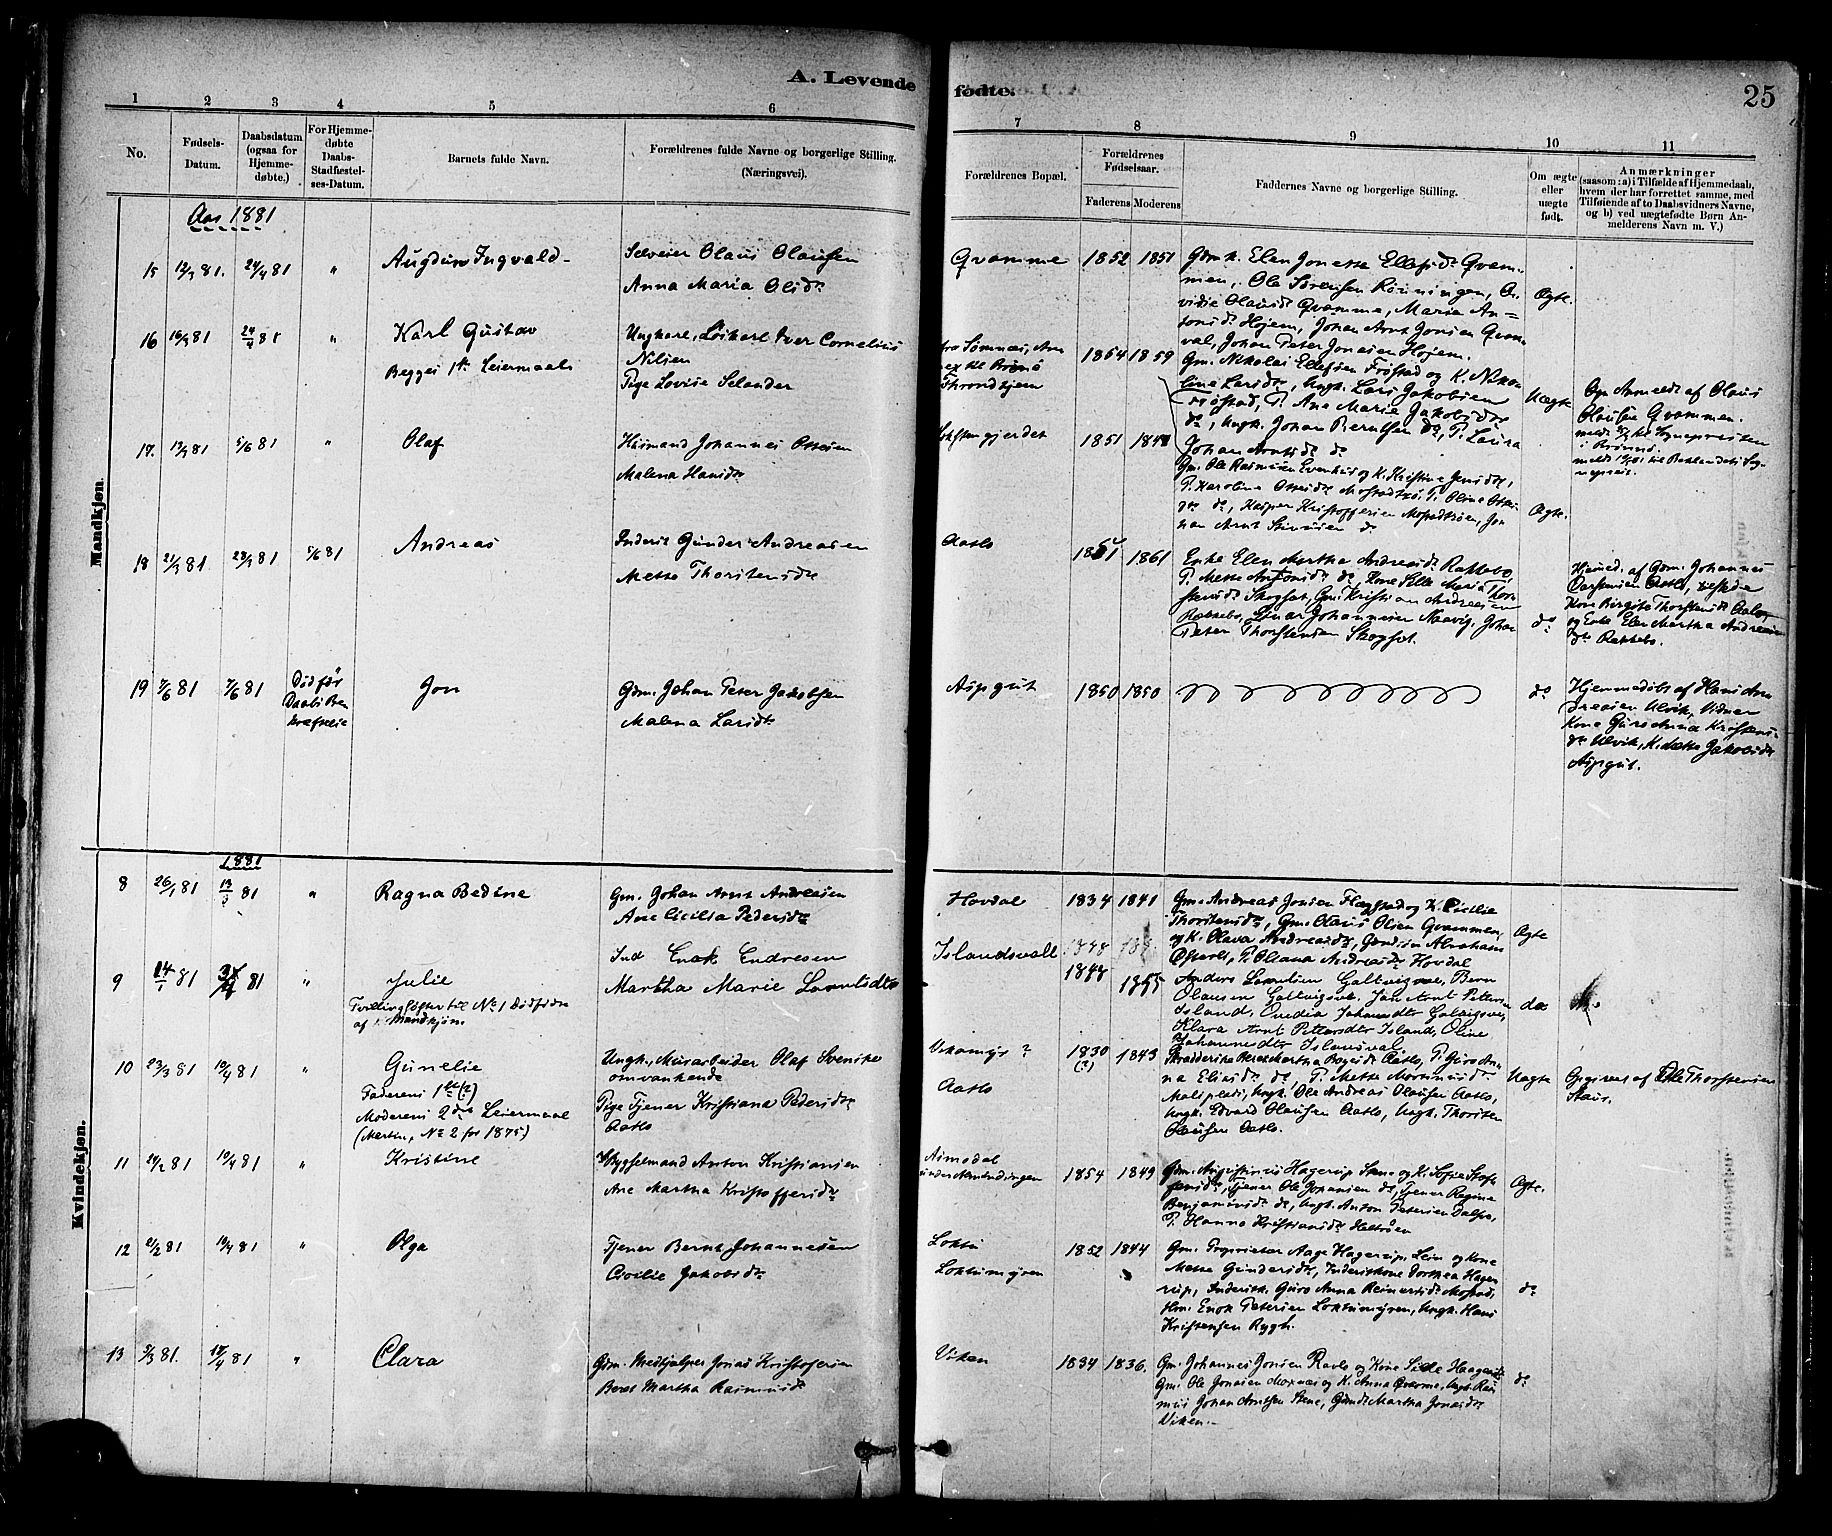 A. Levende fødte.
25
1 2 3 4 5 6 7 8 9 10 11
No.
Fødsels-Datum.
Daabsdatum (ogsaa for Hjemmedøbte.)
For Hjemmedøbte Daabs-Stadfæstelses-Datum.
Barnets fulde Navn.
Forældrenes fulde Navne og borgerlige Stilling. (Næringsvei).
Forældrenes Bopæl.
Forældrenes Fødselsaar.
Faderens Moderens
Faddernes Navne og borgerlige Stilling.
Om ægte eller uægte født.
Anmærkninger
(saasom: a) i Tilfælde af Hjemmedaab,
hvem der har forrettet samme, med
Tilføiende af to Daabsvidners Navne,
og b) ved uægtefødte Børn An-
melderens Navn m. V.)
Mandkjøn.
Aar 1881
15 12/3 81. 24/4 81 " Augdun Ingvald
Selveier Olaus Olausen
Anna Maria Olsdr
Qvamme 1852 1851
Gdmk. Elen Jonetta Ellefsdr Qvam-
men, Ole Sørensen Rønningen,
Olausdr Qvamme, Maria An-
tonsdr Højem, Johan Arnt Jonsen Qvam-
val, Johan Peter Jonasen Højem.
Ægte.
16 81 24/4 81 " Karl Gustav
Begges 1ste Leiermaal
Ungkarl, Løskarl Iver Cornelius
Nilsen
Pige Lovise Selander
fra Sømnæs,
Throndhjem
1854 1859
Gm. Nikolai Ellefsen Frøstad og K. Niko-
line Larsdr, Ungk. Lars Jakobsen
Frøstad, P. Ane Marie Jakobsdr
do, Ungk. Johan Berntsen do, P. Laura
Johan Arntsdr do
Uægte
Opg. Anmeldt af Olaus
Olausen Qvammen.
til Sognepræsten
i Brønnø.
til Baklandets Sog-
nepræst.
17. 13/3 81 5/6 81 " Olaf
Husmand Johannes Ottesen
Malena Hansdr
1851
Gm. Ole Rasmusen Evenhus og K. Kristine Jensdr,
P. Karoline Ottesdr Mostadtrø, P. Oline Ottes-
dr do, Kasper Kristoffersen Mostadtrøen, Jo-
han Arnt Simonsen do
Ægte.
18 21/3 81. 28/3 81 5/6 81 Andreas
Inderst Gunder Andreasen
Mette Thorstensdr
Aatlo 1861
Enke Elen Martha Andreasdr Rakkebo,
P. Mette Antonsdr do, Kone Sille Maria Thor-
stensdr Skogset, Gm. Kristian Andreasen
Rakkebo, Einar Johannesen Naavig, Johan
Peter Thorstensen Skogset.
do
Hjemmed. af Gdm. Johannes
Aatlo,
Kone Birgitte Thorstensdr Aatlo,
og Enke Elen Martha Andreas-
dr Rakkebo.
19 7/6 81 7/6 81
Død før
Daabs Be-
kræftelse
Jon
Gdm. Johan Peter Jakobsen
Malena Larsdr
Aspgut 1850 1850
do
Hjemmedøbt af Hans An-
dreasen Ulvik, Vidner
Kone Guro Anna Kristens-
dr Ulvik, K. Jakobsdr
Aspgut.
Kvindekjøn.
1881
8 26/1 81 13/3 81 " Ragna Bedine
Gm. Johan Arnt Andreasen
Ane Cicilia Pedersdr
Hovdal 1834 1841
Gm. Andreas Jonsen Flægstad og K. Cicilie
Thorstensdr, Gm. Olaus Olsen Qvammen,
og K. Olava Andreasdr, Abraham
P. Oliana Andreasdr Hovdal
Ægte
9 14/1 81 81 " Julie
Tvillingsøster til No 1 Dødfødte
af Mandkjøn.
Ind Enok Endresen
Martha Marie
Islandsvall 1848
1848 1855
Anders Galtvigsve, Bern
Olausen Galtvigsve, Jan Arnt Petter-
Island, Johansdtr Galtvigsve,
Klara Arnt Pettersdtr Island, Oline
Johannesdtr Islandsval.
do
10 23/3 81 10/4 81 " Gunelie
Faderens 1ste (?)
Moderens 2det Leiermaal
(Martin, No 2 for 1875)
Ungk., Murarbeider Olaf Svenske
omvankende
Pige Tjener Kristiana Pedersdr
Aatlo
Vikamyr?
Aatlo
1830 (?) 1843
Martha Aatlo, P. Guro An-
na Eliasdr do, P. Mette Mortensdr
Maliplads, Ungk. Ole Andreas Olausen Aatlo,
Ungk. Edvard Olausen Aatlo, Ungk. Thorsten
Olausen Aatlo.
Uægte
Opgives af Thorstensen
Staur.
11 24/2 81 10/4 81 " Kristine
Anton Kristiansen
Ane Martha Kristoffersdr
under Almindingen
1854 1849
Gdm. Augustinus Hagerup Stene og K. Sofie Stof-
fersdr, Tjener Ole Johansen do, Tjener Regine
Benjaminsdr do, Ungk. Anton Petersen Dalse,
P. Hanna Kristiansdr
Ægte.
12 81 10/4 81 " Olga
Tjener Bernt Johannesen
Cicilie Jakobsdr
Loktu
Loktumyren
1852 1844
Gm. Proprietær Aage Hagerup, Lein og Kone
Metta Gundersdr, Inderstkone Dorthea Hage-
rup, Inderstk. Guro Anna Reinertsdr Mostad,
Hm. Enok Petersen Loktumyren, Ungk. Hans
Kristensen Rygh.
do
13 5/3 81. 81 " Clara
Gdm. Medhjælper Jonas Kristofersen
Beret Martha Rasmusdr
Viken 1834 1836.
Gm. Johannes Jonsen Ravlo og Kone Sille Haagensdr
Gm. Ole Jonasen Moxnæs og K. Anna Qvamme, Ungk. Ras-
mus Johan Arntsen Stene, Gunds Martha Jonasdr
Viken.
do